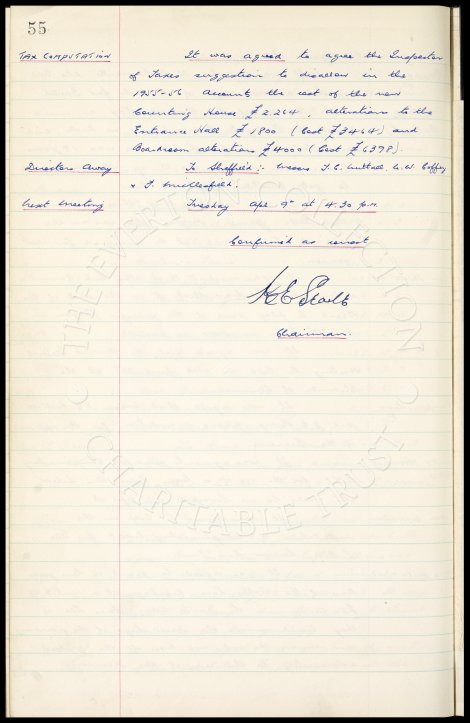 55
TAX COMPUTATION It was agreed to agree the Inspector
of Taxes suggestion to disallow in the
1955-56 accounts the cost of the new
Counting House £2,264, alterations to the
Entrance Hall £1800 (Cost £3464) and
Boardroom alterations £4000 (Cost £6378).
Directors Away To Sheffield :- Messrs T.C. Nuttall, C.W. Coffey
& F. Micklesfield.
Next Meeting Tuesday Apl 9th at 4.30 p.m.
Confirmed as correct
Chairman.
THE EVERTON COLLECTION
CHARITABLE TRUST